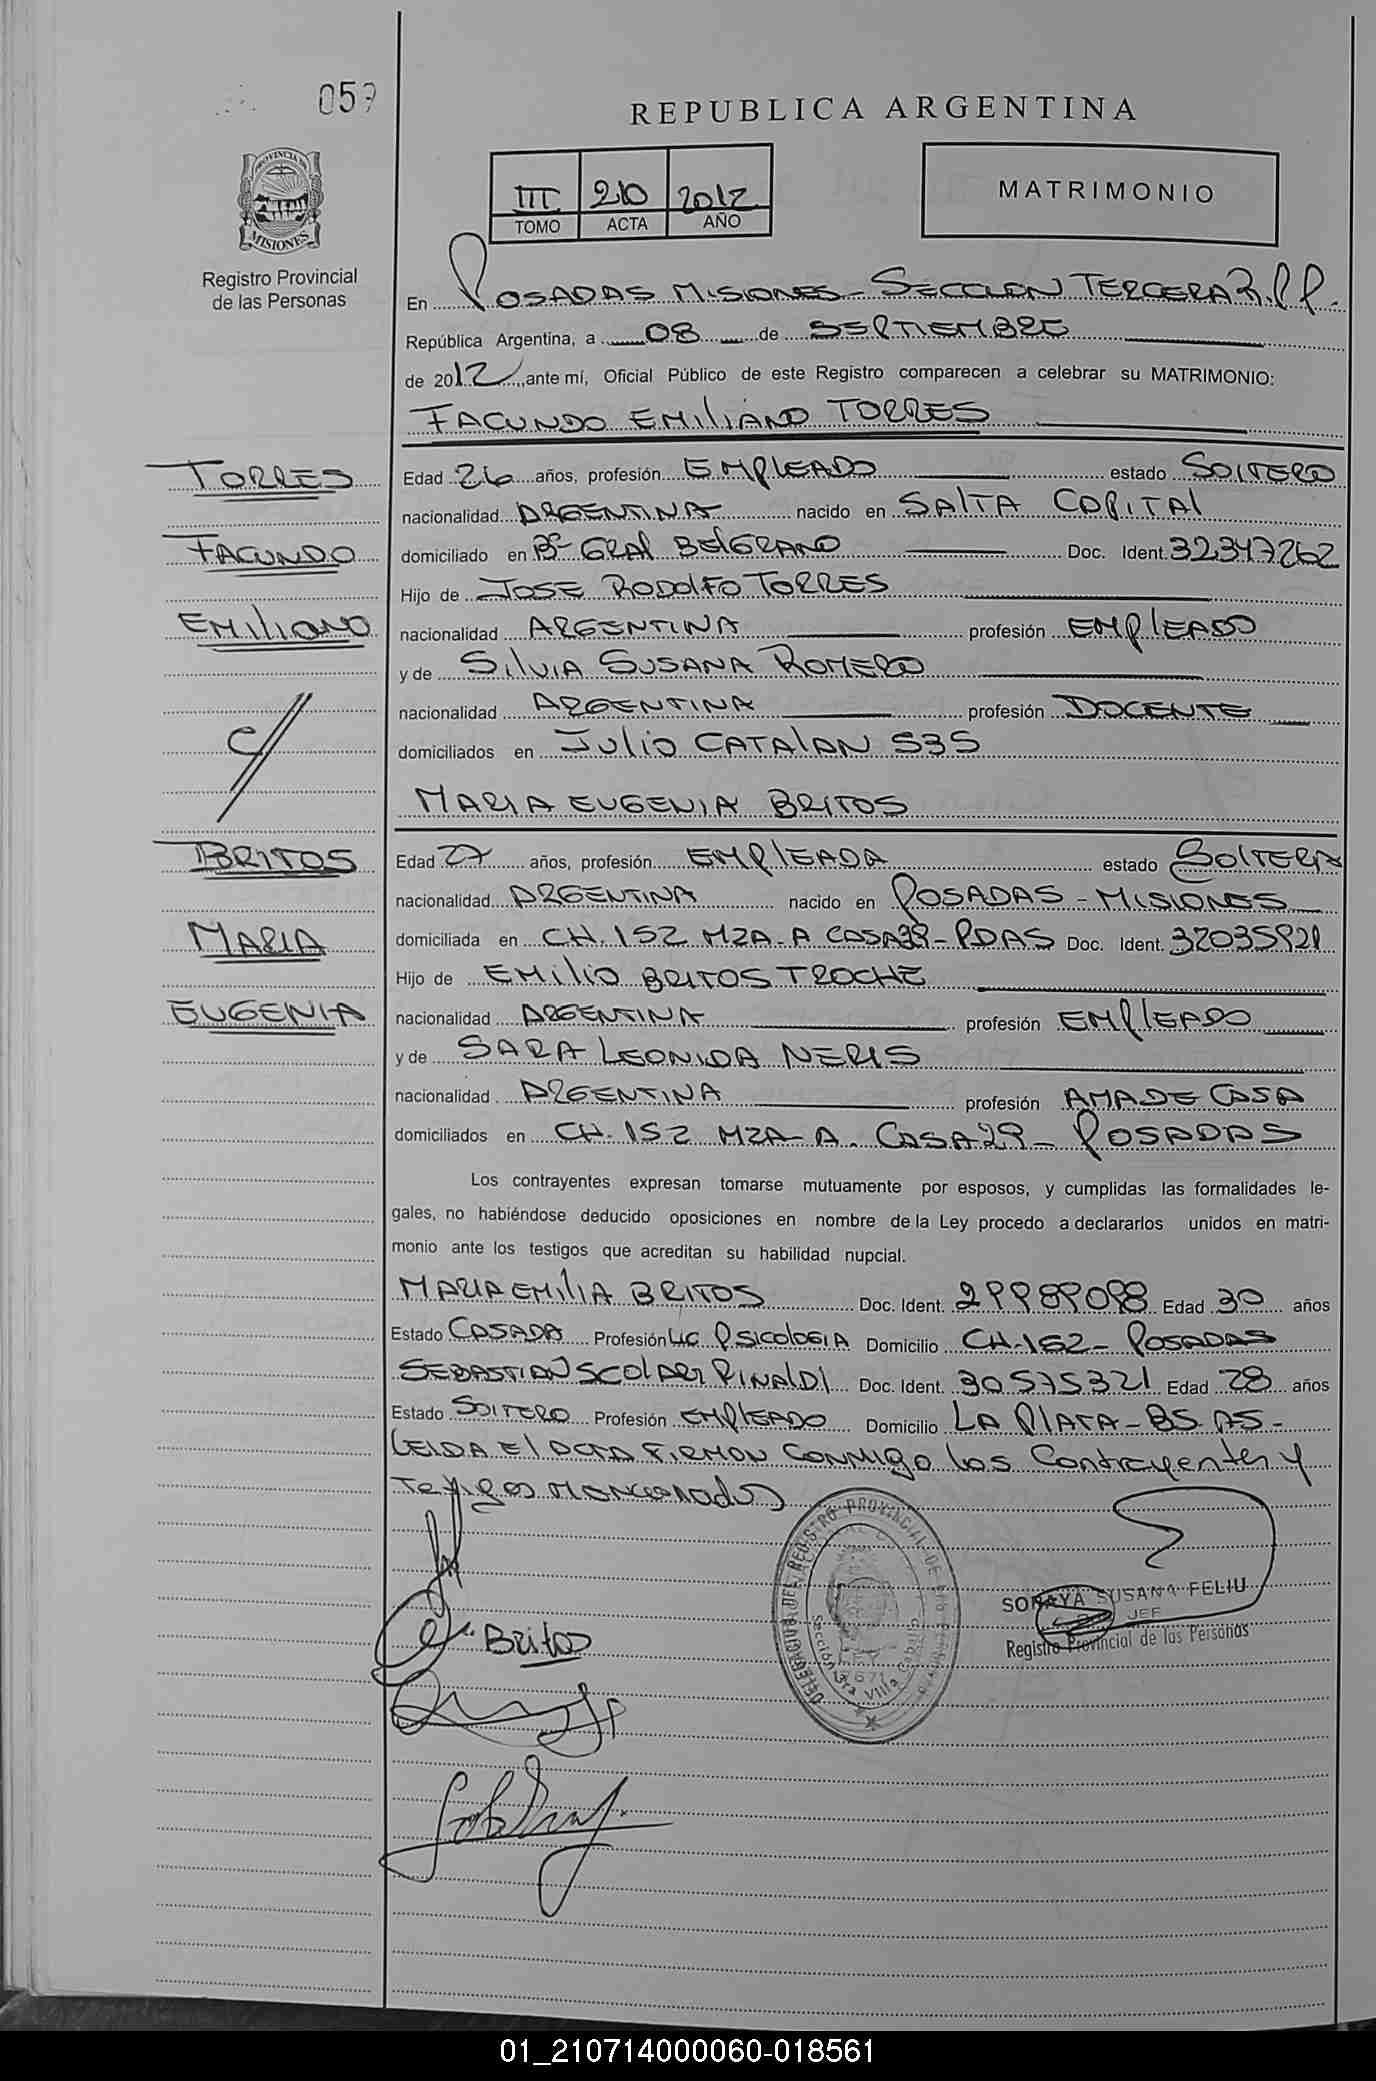 059
REPUBLICA ARGENTINA
PROVINCIA DE
MISIONES
III 210 2012
TOMO ACTA AÑO
MATRIMONIO
Registro Provincial
de las Personas
En POSADAS MISIONES - SECCION TERCERA R.P.P.
República Argentina, a 08 de SEPTIEMBRE
de 2012, ante mí, Oficial Público de este Registro comparecen a celebrar su MATRIMONIO:
FACUNDO EMILIANO TORRES
TORRES
Edad 26 años, profesión EMPLEADO estado SOLTERO
nacionalidad ARGENTINA nacido en SALTA CAPITAL
FACUNDO
domiciliado en Bº GRAL BELGRANO Doc. Ident. 32347262
Hijo de JOSE RODOLFO TORRES
EMILIANO
nacionalidad ARGENTINA profesión EMPLEADO
y de SILVIA SUSANA ROMERO
nacionalidad ARGENTINA profesión DOCENTE
c/
domiciliados en JULIO CATALAN 535
MARIA EUGENIA BRITOS
BRITOS
Edad 27 años, profesión EMPLEADA estado SOLTERA
nacionalidad ARGENTINA nacido en POSADAS - MISIONES
MARIA
domiciliada en CH. 152 MZA - A CASA 29 - PDAS Doc. Ident. 32035921
Hijo de EMILIO BRITOS TROCHE
EUGENIA
nacionalidad ARGENTINA profesión EMPLEADO
y de SARA LEONIDA NERIS
nacionalidad ARGENTINA profesión AMA DE CASA
domiciliados en CH. 152 MZA - A. CASA 29 - POSADAS
Los contrayentes expresan tomarse mutuamente por esposos, y cumplidas las formalidades le-
gales, no habiéndose deducido oposiciones en nombre de la Ley procedo a declararlos unidos en matri-
monio ante los testigos que acreditan su habilidad nupcial.
MARIA EMILIA BRITOS Doc. Ident. 29989098 Edad 30 años
Estado CASADA Profesión LIC PSICOLOGIA Domicilio CH. 152 - POSADAS
SEBASTIAN SCOLARI RINALDI Doc. Ident. 30575321 Edad 28 años
Estado SOLTERO Profesión EMPLEADO Domicilio LA PLATA - BS. AS -
LEIDA EL ACTA FIRMAN CONMIGO los Contrayentes y
Testigos Mencionados
DELEGACION DEL REGISTRO PROVINCIAL DE LAS
Sección 3ra Villa Cabello
SORAYA SUSANA FELIU
JEF
Registro Provincial de las Personas
Britos
01_210714000060-018561